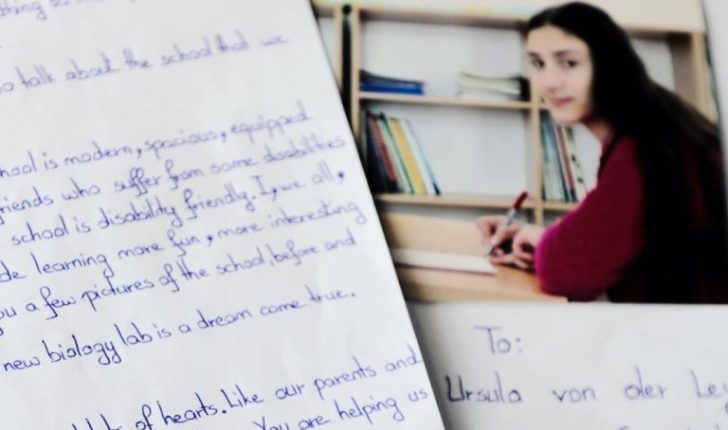 talk about the school that we
school is modern, spacious, equipped
friends who suffer from some disabilities
school is disability friendly. I, we all,
learning more fun, more interesting
you a few pictures of the school, before and
new biology lab is a dream come true.
of hearts. Like our parents and
You are helping us
To:
Ursula von der